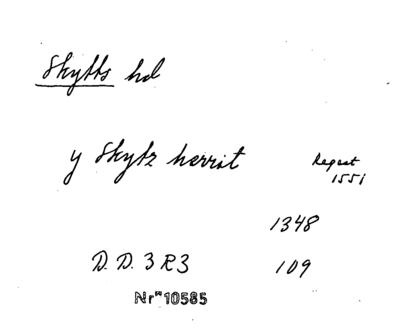 Skytts hd
y Skytz herrit Regest
1551
1348
D. D. 3 R 3 109
Nr 10585